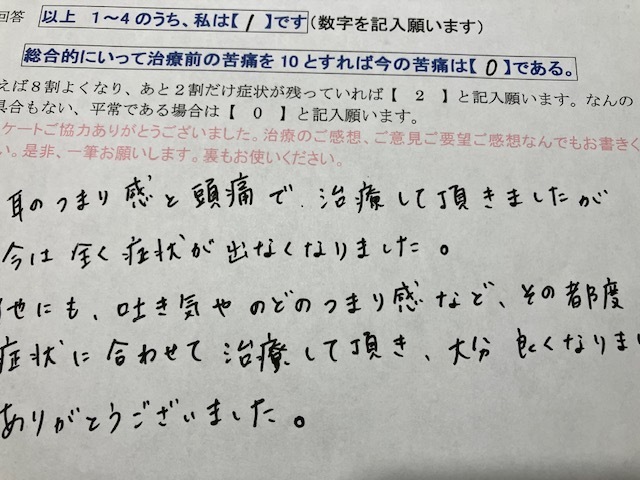 回答 以上 1～4のうち、私は【 1 】です(数字を記入願います)
総合的にいって治療前の苦痛を10とすれば今の苦痛は【 0 】である。
えば8割よくなり、あと2割だけ症状が残っていれば【 2 】と記入願います。なんの
具合もない、平常である場合は【 0 】と記入願います。
ケートご協力ありがとうございました。治療のご感想、ご意見ご要望ご感想なんでもお書きく
い。是非、一筆お願いします。裏もお使いください。
耳のつまり感と頭痛で、治療して頂きましたが
今は全く症状が出なくなりました。
他にも、吐き気やのどのつまり感など、その都度
症状に合わせて治療して頂き、大分良くなりまし
ありがとうございました。